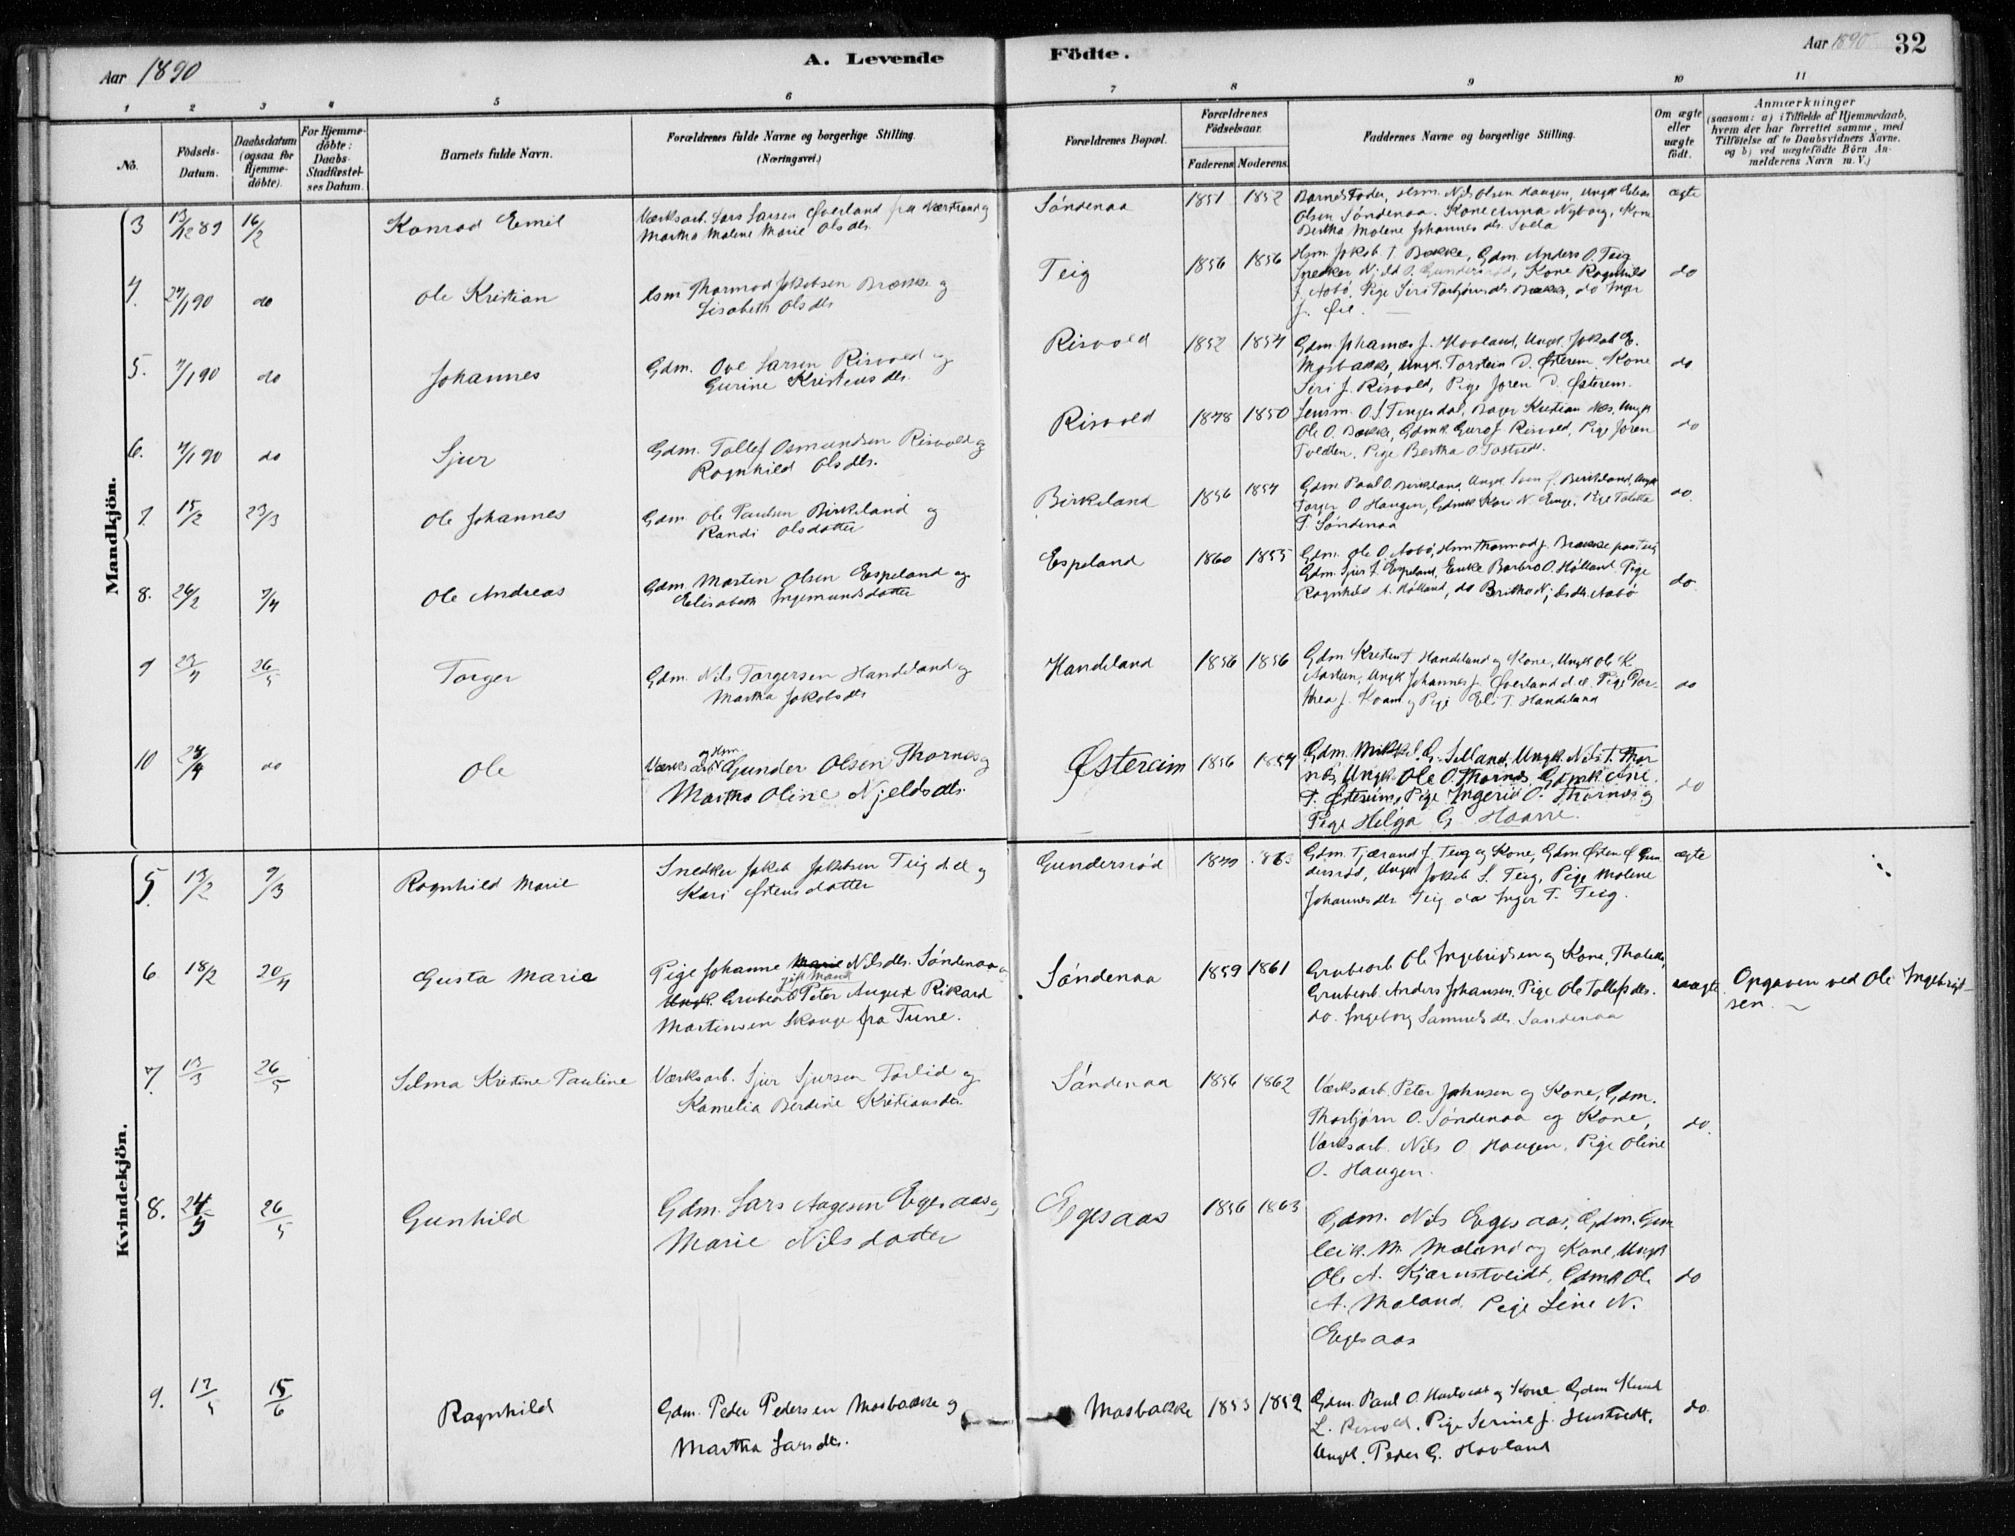 Aar 1890
A. Levende Födte.
Aar 1890
32
1 2 3 4 5 6 7 8 9 10 11
No.
Födsels-Datum.
Daabsdatum (ogsaa for Hjemme-döbte).
For Hjemme-döbte: Daabs-Stadfæstelses Datum.
Barnets fulde Navn.
Forældrenes fulde Navne og borgerlige Stilling.
(Næringsvei.)
Forældrenes Bopæl.
Forældrenes Födselsaar.
Faderens Moderens
Faddernes Navne og borgerlige Stilling.
Om ægte eller uægte födt.
Anmærkninger
(saasom: a) i Tilfælde af Hjemmedaab,
hvem der har forrettet samme, med
Tilföielse af to Daabsvidners Navne.
og b) ved uægtefödte Börn An-
melderens Navn m. V.)
Mandkjön.
3 13/12 89 16/2 Konrad Emil
Værksarb. Lars Larsen Øverland fra Nærstrand og
Martha Malene Marie Olsdtr.
Søndenaa 1851 1852
Barnets Fader, Husm. Nils Olsen Haugen, Ungk Elias
Olsen Søndenaa. Kone Anna Nyborg, Kone
Bertha Malene Johannesdtr.
ægte
4. 24/1 90 do Ole Kristian
Hsm Thormod Jakobsen Brække og
Lisabeth Olsdtr
Teig 1856 1856
Hsm. Jakob T. Bække, Gdm. Anders O. Teig
Snedker Njeld O. Gundersrød, Kone Ragnhild
J. Aabø, Pige Siri Torbjørnsdtr. Bække, do Inger
do
5. 7/1 90 do Johannes
Gdm. Ove Larsen Risvold og
Gurine Kristensdtr.
Risvold 1852 1854
Gdm. Johannes J. Hovland, Ungk. Jakob E.
Mosbække, Ungk. Torstein D. Østerem. Kone
Siri J. Risvold, Pige Joren D. Østerem.
do
6. 7/1 90 do Sjur
Gdm. Tollef Osmundsen Risvold og
Ragnhild Olsdtr.
Risvold 1848 1850
Lensm. O. S. Tengesdal, Bager Kristian Næs, Ungk
Ole O. Bække, Gdmk. Guro J. Risvold, Pige Joren
Tvedten, Pige Bertha O. Tostvedt.
do
7. 15/2 23/3 Ole Johannes
Gdm. Ole Paulsen Birkeland og
Randi Olsdatter
Birkeland 1856 1854
Gdm. Paul O. Birkeland, Ungk Sven J. Birkeland, Ungk
Torger O Haugen, Gdmk Kari N. Enge, Pige Taletta
T. Søndenaa
do.
8. 26/2 7/4 Ole Andreas
Gdm. Martin Olsen Espeland og
Elisabeth Ingemundsdatter
Espeland 1860 1855
Gdm. Ole O. Aabø, Hsm Thormod J. Brække paa Teig
Gdm. Sjur J. Espeland, Enke Barbro O. Hølland, Pige
Ragnhild A. Hølland, do Britha Njeldsdtr. Aabø
do.
9 23/4 26/5 Torger
Gdm. Nils Torgersen Handeland og
Martha Jakobsdtr
Handeland 1856 1856
Gdm Kristen T. Handeland og Kone, Ungk Ole K.
Aartun, Ungk Johannes J. Øverland d.æ. Pige Dor-
thea J. Kvam og Pige Eli T. Handeland
do
10 24/4 do Ole
og Hsm
Værksarb Gunder Olsen Thornes og
Martha Oline Njeldsdtr.
Østereim 1856 1854
Gdm. Mikkel G. Selland, Ungk. Nils T. Thor
næs, Ungk. Ole O. Thornæs, Gdmk Ane
T. Østereim, Pige Ingeri O. Thornes og
Pige Helga G.
do
Kvindekjön.
5. 13/2 9/3 Ragnhild Marie
Snedker Jakob Jakobsen Teig d.æ. og
Kari Østensdatter
Gundersrød 1863
Gdm. Tjærand J. Teig og Kone, Gdm Østen Ø Gun
dersrød, Ungk Jakob S. Teig, Pige Malene
Johannesdtr Teig do Inger T. Teig.
ægte
6 18/2 20/4 Gusta Marie
Pige Johanne Marie Nilsdtr. Søndenaa og
gift Mand
Ungk. Grubearb Peter August Rikard
Martinsen Skauge fra Tune.
Søndenaa 1859 1861
Grubearb Ole Ingebrigtsen og Kone, Thalette,
Grubearb. Anders Johansen, Pige Ole Tollefsdtr.
do. Ingeborg Samuelsdtr. Søndenaa
uægte
Opgaven ved Ole Ingebrigt-
sen.
7. 13/3 26/5 Selma Kristine Pauline
Værksarb. Sjur Sjursen Torlid og
Kamelia Berdine Kristiansdtr.
Søndenaa 1856 1862
Værksarb. Peter Johnsen og Kone, Gdm.
Thorbjørn O. Søndenaa og Kone,
Værksarb. Nils O Haugen, Pige Oline
O. Haugen.
do.
8. 24/3 26/5 Gunhild
Gdm. Lars Aagesen Egesaas og
Marie Nilsdatter
Egesaas 1856 1863
Gdm. Nils Egesaas, Gdm. Gun
leik. M. Mæland og Kone, Ungk
Ole A. Kjærnstveidt, Gdmk Ole
A. Moland, Pige Line N.
Egesaas
do
9. 17/5 15/6 Ragnhild
Gdm. Peder Pedersen Mosbække og
Martha Larsdtr.
Mosbække 1853 1859
Gdm. Paul O. Hustvedt og Kone Gdm Knud
L. Risvold. Pige Serine J. Hustvedt.
Ungk. Peder G. Hovland
do.